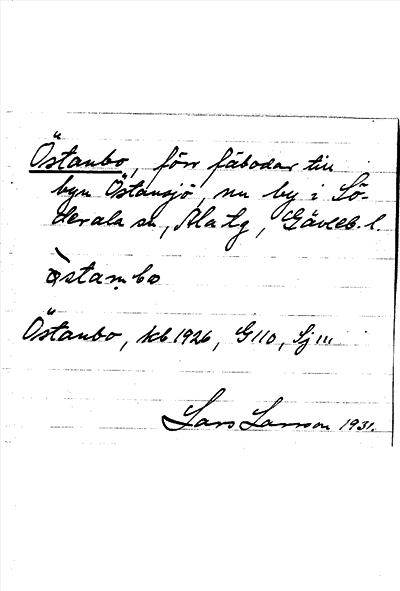 Östanbo, förr fäbodar till
byn Östansjö, nu by i Sö-
derala sn, Ala tg, Gävleb. l.
òstam̥bo
Östanbo, kb 1926, G 110, Sj III
Lars Larsson 1931.